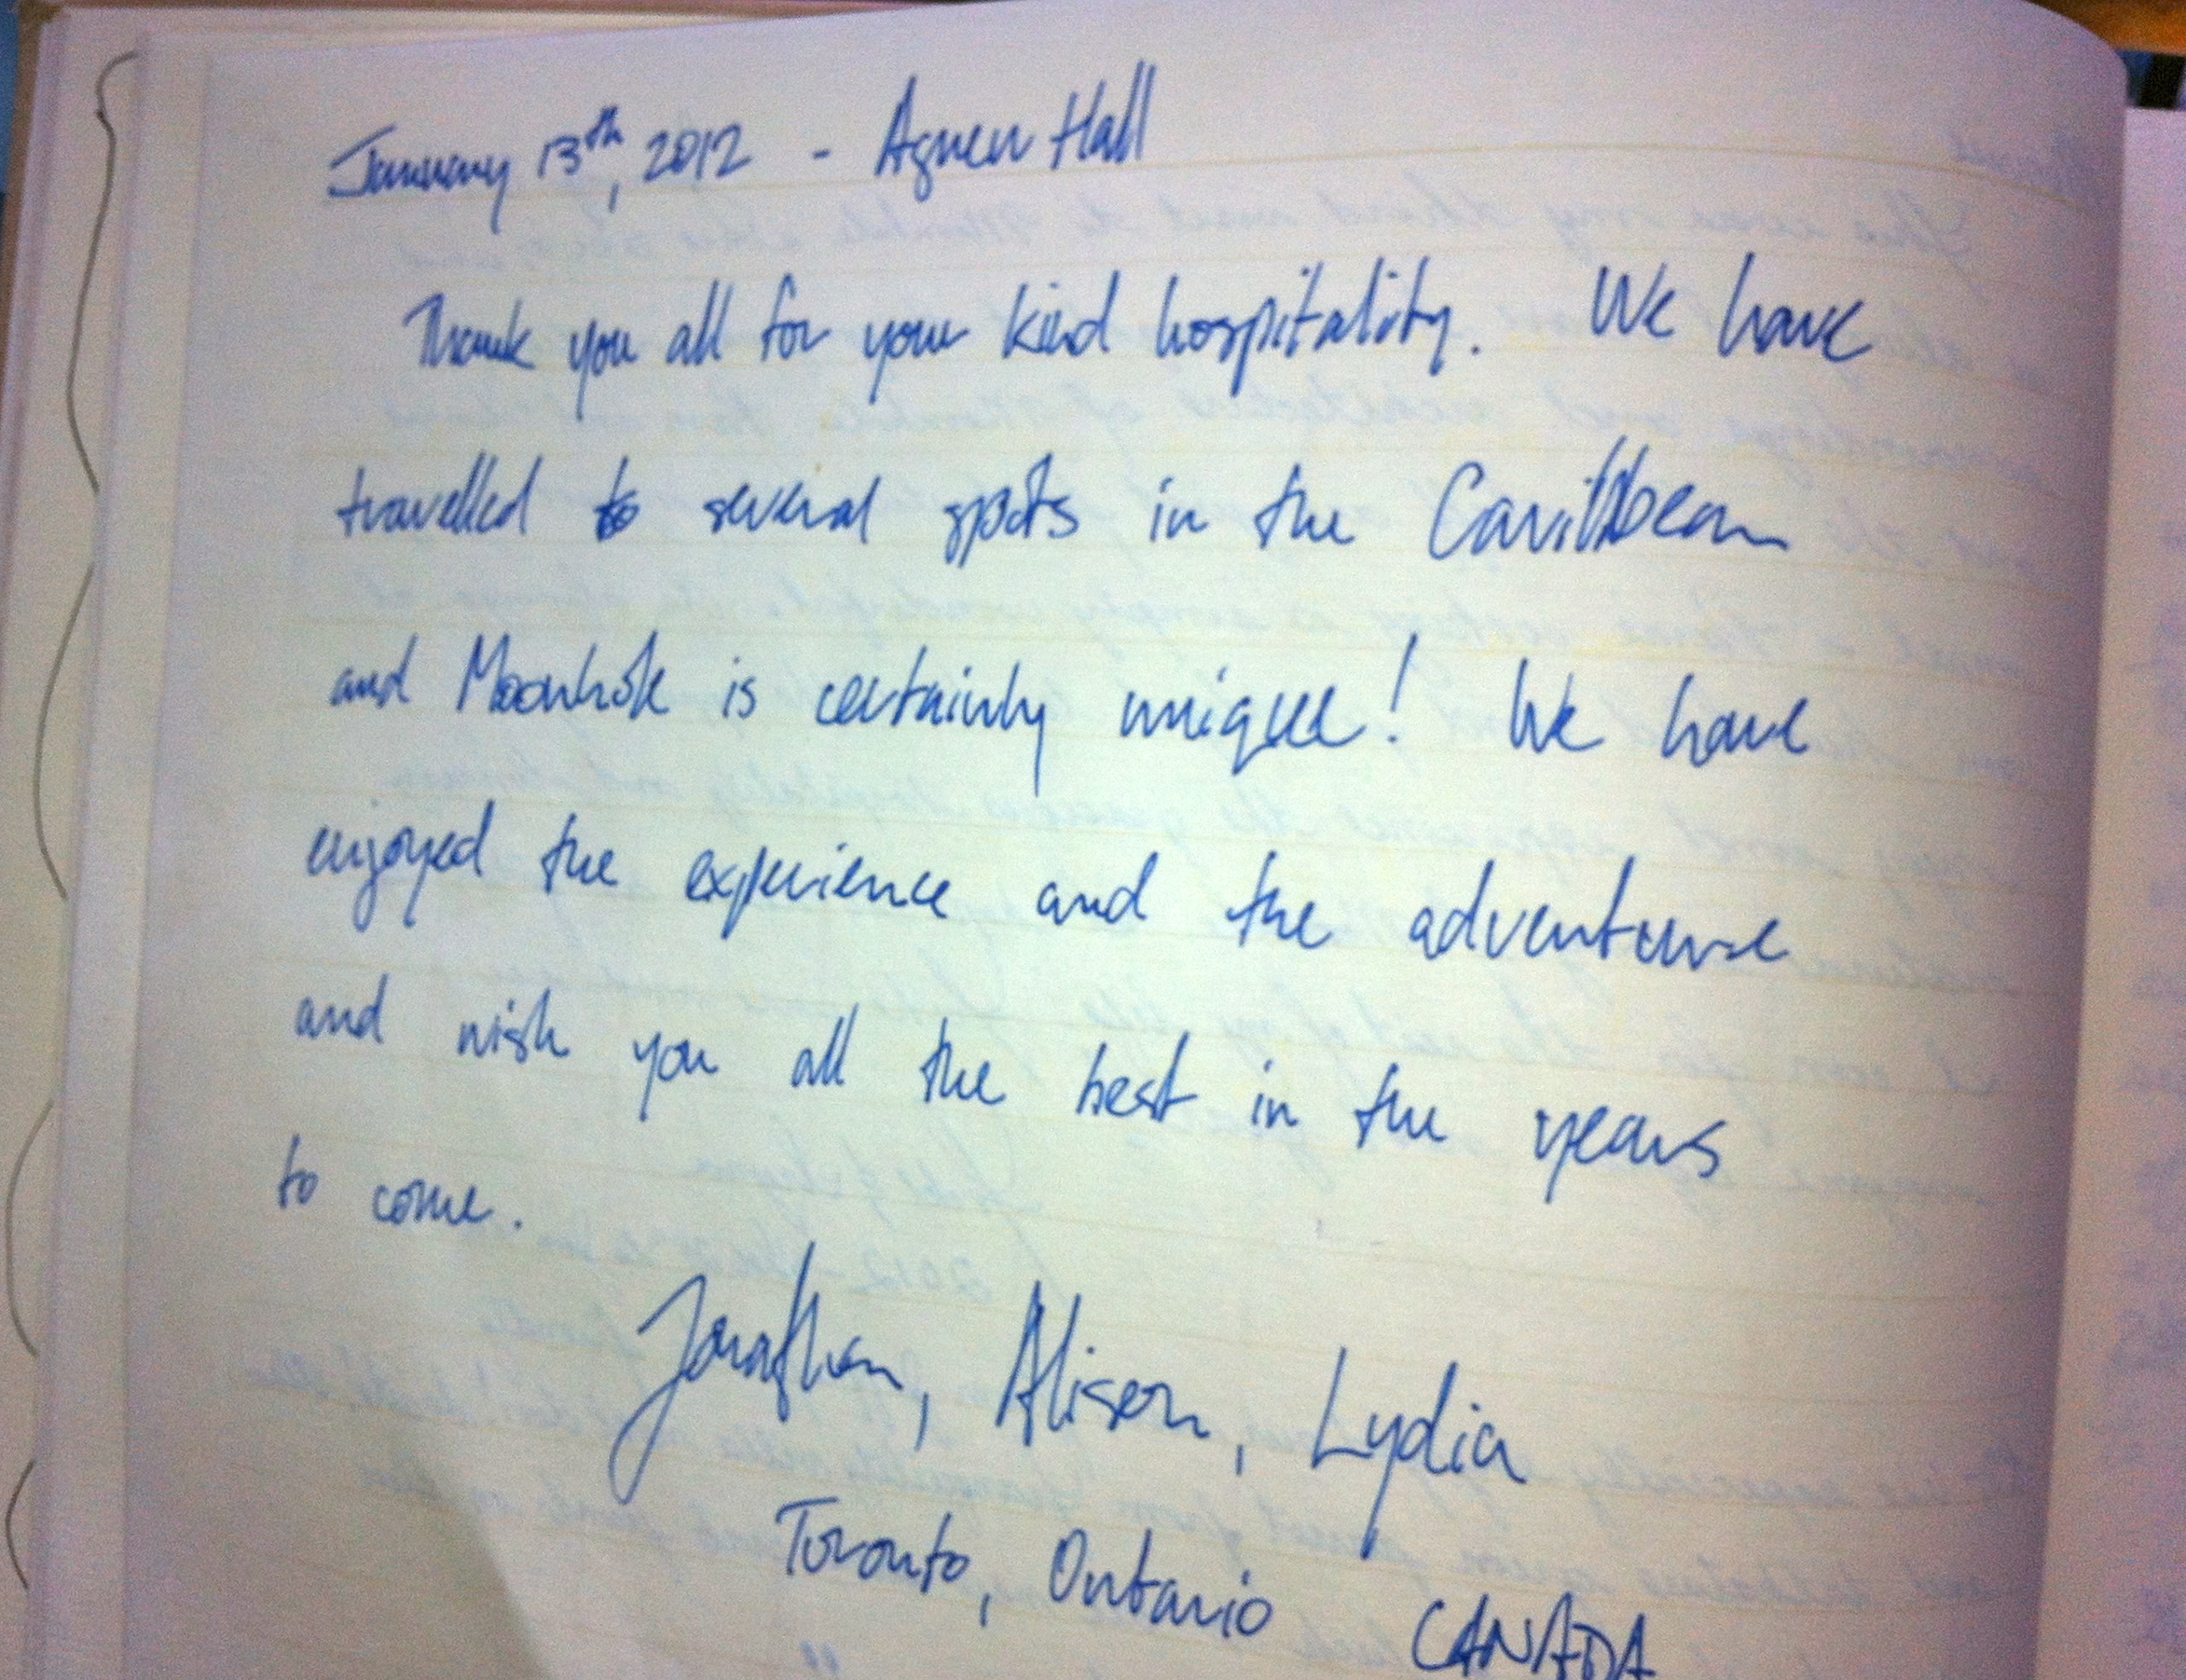 January 13th, 2012 - Agnew Hall
Thank you all for your kind hospitality. We have
travelled to several spots in the Caribbean
and Moonhole is certainly unique! We have
enjoyed the experience and the adventure
and wish you all the best in the years
to come.
Jonathan, Alison, Lydia
Toronto, Ontario CANADA